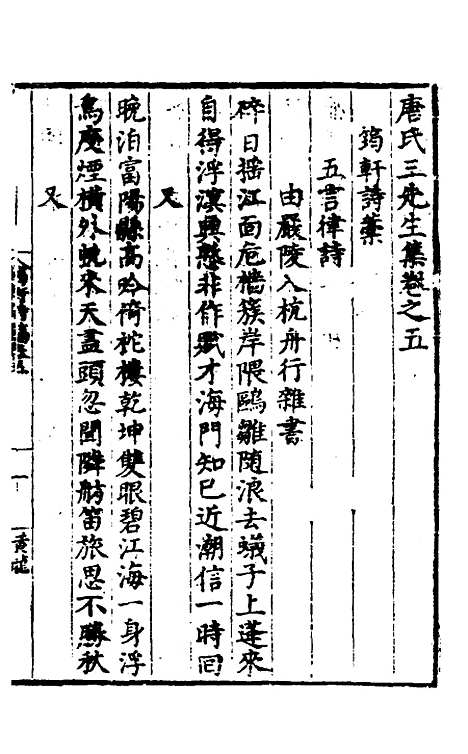 唐氏三先生集卷之五
筠軒詩藁
五言律詩
由嚴陵入杭舟行雜書
碎日搖江面危檣簇岸隈鷗雛隨浪去蟻子上蓬來
自得浮溟興慙非作賦才海門知已近潮信一時回
又
晚泊富陽縣高吟倚柁樓乾坤雙眼碧江海一身浮
鳥度煙橫外帆來天盡頭忽聞隣舫笛旅思不勝秋
又